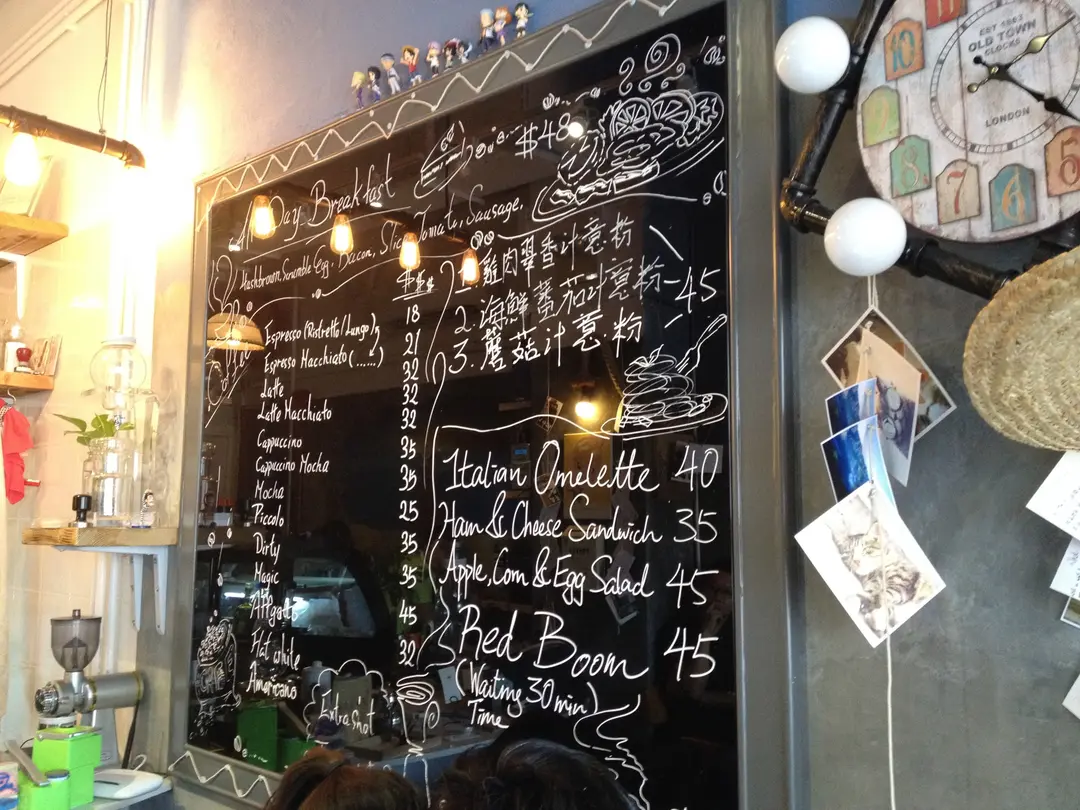 All Day Breakfast $48
Hashbrown, Scramble Egg, Bacon, Slice Tomato, Sausage.
1. 雞肉翠香汁意粉
2. 海鮮蕃茄汁意粉 -45
3. 蘑菇汁意粉
Espresso (Ristretto/Lungo) 18
Espresso Macchiato (......) 21
Latte 32
Latte Macchiato 32
Cappuccino 32
Cappuccino Mocha 35
Mocha 35
Piccolo 25
Dirty 35
Magic 35
Affgato 45
Flat white 32
Americano
Extra shot
Italian Omelette 40
Ham & Cheese Sandwich 35
Apple, Corn & Egg Salad 45
Red Boom 45
(Waiting 30min)
Time
EST 1863
OLD TOWN
CLOCKS
LONDON
10
8
7
6
5